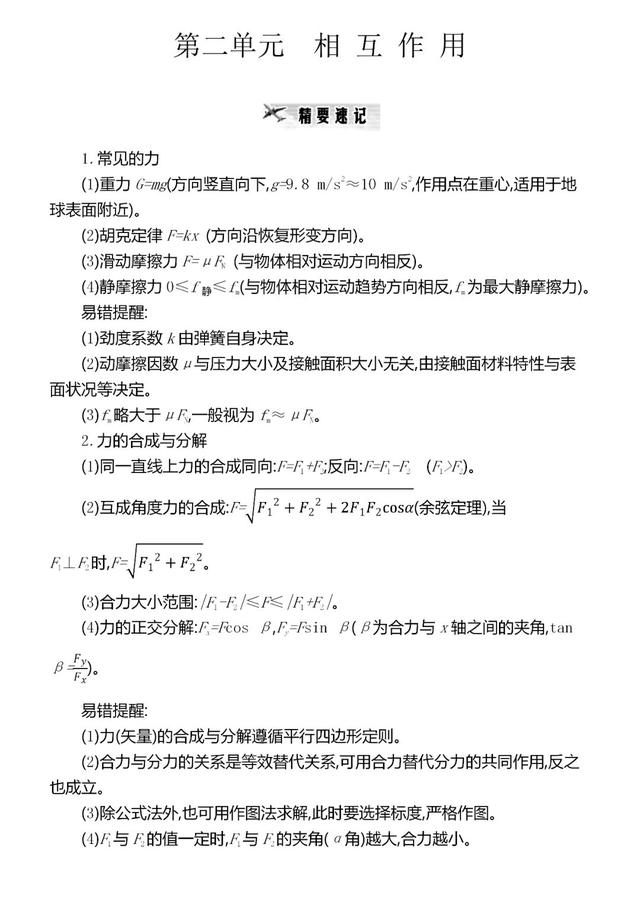 第二单元 相 互 作 用
精要速记
1.常见的力
(1)重力 G=mg(方向竖直向下,g=9.8 m/s²≈10 m/s²,作用点在重心,适用于地
球表面附近)。
(2)胡克定律 F=kx (方向沿恢复形变方向)。
(3)滑动摩擦力 F=μFN (与物体相对运动方向相反)。
(4)静摩擦力 0≤f静≤fm(与物体相对运动趋势方向相反,fm为最大静摩擦力)。
易错提醒:
(1)劲度系数 k 由弹簧自身决定。
(2)动摩擦因数 μ与压力大小及接触面积大小无关,由接触面材料特性与表
面状况等决定。
(3)fm略大于 μFN,一般视为 fm≈ μFN。
2.力的合成与分解
(1)同一直线上力的合成同向:F=F₁+F₂;反向:F=F₁-F₂ (F₁>F₂)。
(2)互成角度力的合成:F=√(F₁²+F₂²+2F₁F₂cosα)(余弦定理),当
F₁⊥F₂时,F=√(F₁²+F₂²)。
(3)合力大小范围:|F₁-F₂|≤F≤|F₁+F₂|。
(4)力的正交分解:Fx=Fcos β,Fy=Fsin β(β为合力与 x 轴之间的夹角,tan
β=Fy/Fx)。
易错提醒:
(1)力(矢量)的合成与分解遵循平行四边形定则。
(2)合力与分力的关系是等效替代关系,可用合力替代分力的共同作用,反之
也成立。
(3)除公式法外,也可用作图法求解,此时要选择标度,严格作图。
(4)F₁与 F₂的值一定时,F₁与 F₂的夹角(α角)越大,合力越小。